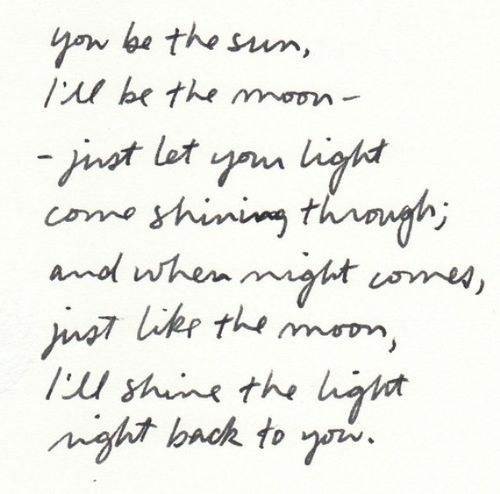 you be the sun,
I'll be the moon-
- just let your light
come shining through;
and when night comes,
just like the moon,
I'll shine the light
right back to you.